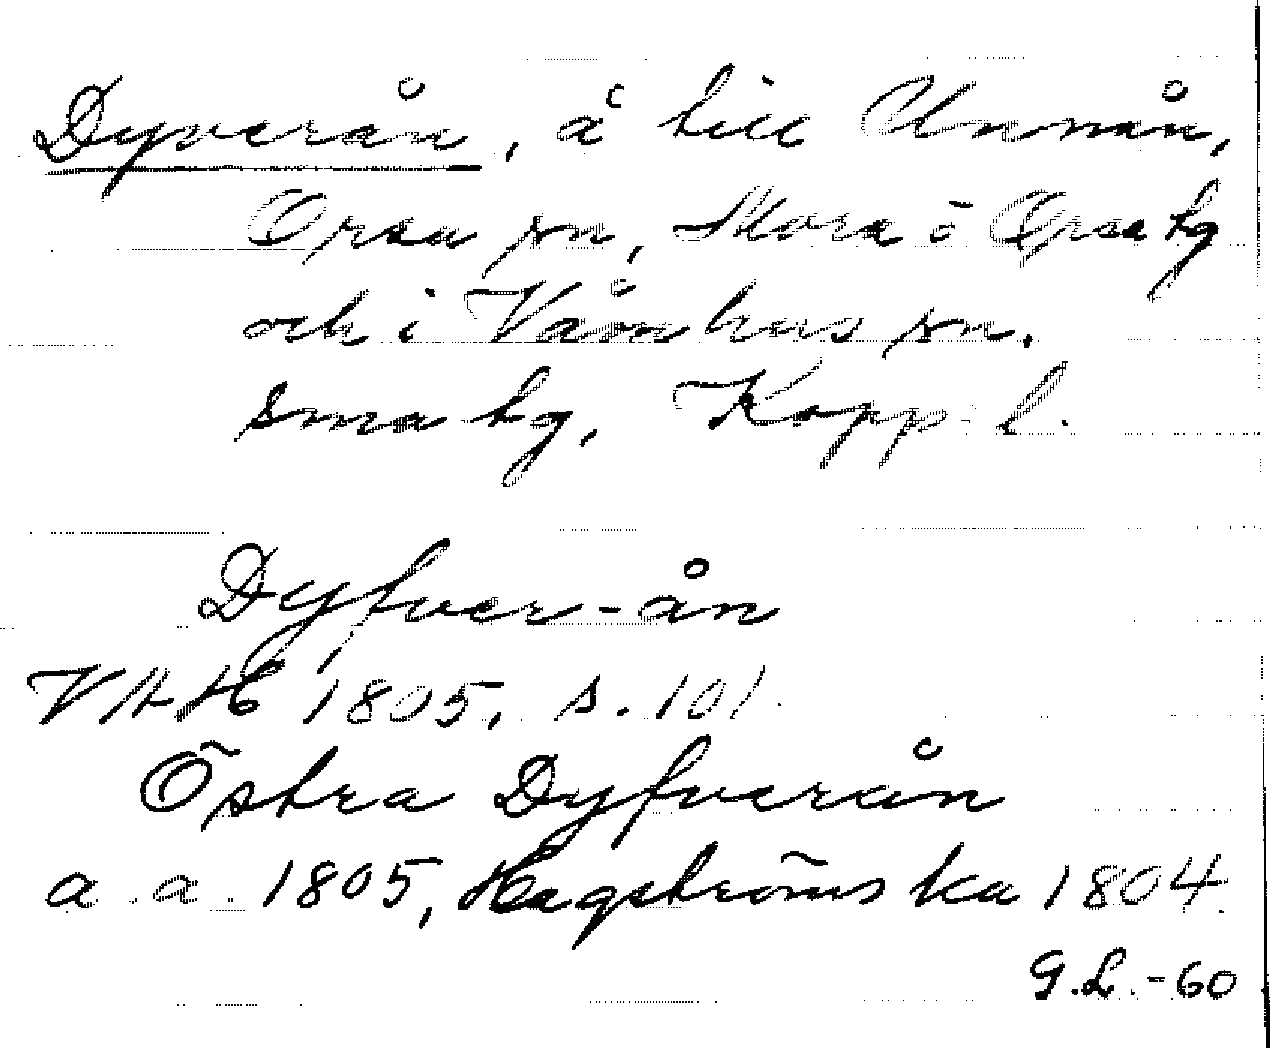 Dyverån, å till Unnån,
Orsa sn, Mora o Orsa tg
och i Våmhus sn.
sma tg, Kopp. l.
Dyfver-ån
VAH 1805, s. 101.
Östra Dyfverån
a. a. 1805, Hagströms ka 1804.
G.L.-60